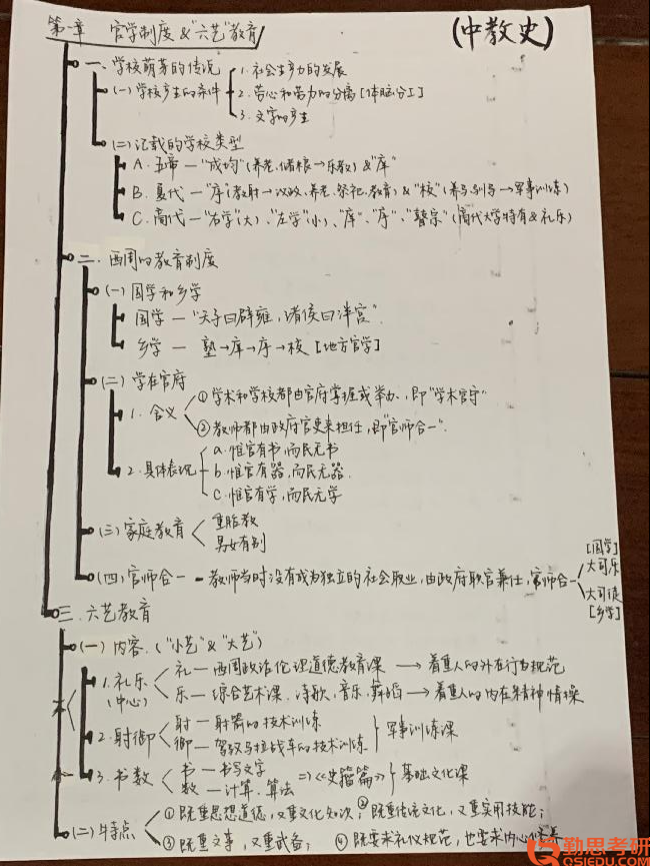 第一章 官学制度&"六艺"教育
(中教史)
一、学校萌芽的传说
(一)学校产生的条件
1.社会生产力的发展
2.劳心和劳力的分离[体脑分工]
3.文字的产生
(二)记载的学校类型
A.五帝—"成均"(养老、储粮→乐教)&"庠"
B.夏代—"序"(教射→议政、养老、祭祀、教育)&"校"(养马、驯马→军事训练)
C.商代—"右学"(大)、"左学"(小)、"庠"、"序"、"瞽宗"(商代大学特有&礼乐)
二.西周的教育制度
(一)国学和乡学
国学—"天子曰辟雍,诸侯曰泮宫".
乡学—塾→庠→序→校[地方官学]
(二)学在官府
1.含义
①学术和学校都由官府掌握或举办,即"学术官守"
②教师都由政府官吏来担任,即"官师合一".
2.具体表现
a.惟官有书,而民无书
b.惟官有器,而民无器.
c.惟官有学,而民无学
(三)家庭教育
重胎教
男女有别
(四)官师合一-教师当时没有成为独立的社会职业,由政府职官兼任,官师合一
[国学]
大司乐
大司徒
[乡学]
三.六艺教育
(一)内容.("小艺"&"大艺")
1.礼乐
(中心)
礼—西周政治伦理道德教育课→着重人的外在行为规范
乐—综合艺术课.诗歌,音乐,舞蹈→着重人的内在精神情操
2.射御
射—射箭的技术训练
御—驾驭马拉战车的技术训练
}军事训练课
3.书数
书—书写文字
数—计算.算法
⇒《史籀篇》}基础文化课
(二)特点
①既重思想道德,又重文化知识;②既重传统文化,又重实用技能;
③既重文事,又重武备;④既要求礼仪规范,也要求内心
勤思考研
QSIEDU.COM